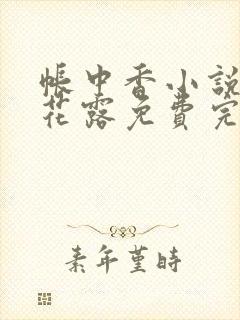 帳中香小說
花露免費完
素年堇時